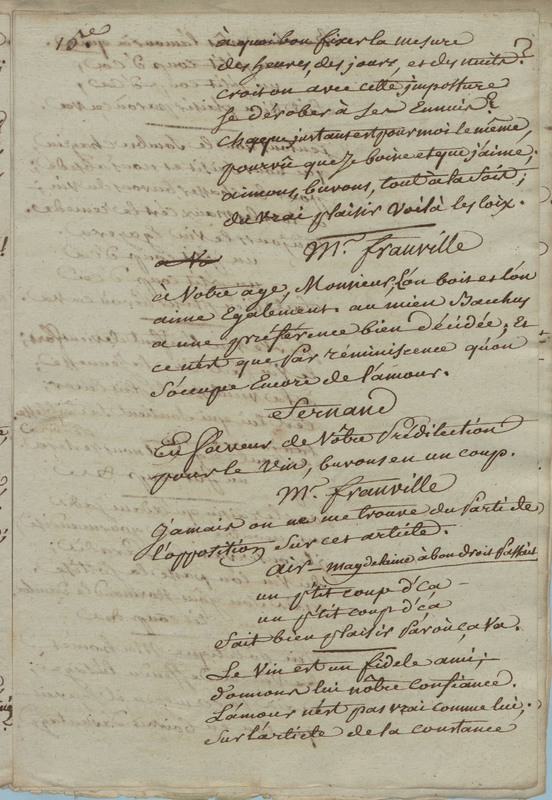 10re
à quoi bon fixer la mesure
des heures, des jours, et des nuits?
croit on avec cette imposture
se dérober à ses Ennuis?
chaque instant est pour moi le même,
pourvû que je boive et que j'aime;
aimons, buvons, tout à la fois;
du vrai plaisir voilà les loix.
Mr. franville
a Vo
à Votre age, Monsieur, l'on boit et l'on
aime Egalement. au mien Bacchus
a une préférence bien décidée; Et
ce n'est que par réminiscence qu'on
s'occupe Encore de l'amour.
Fernand
En faveur de Vôtre Prédilection
pour le vin, buvons en un coup.
Mr. franville
jamais on ne me trouve du Parti de
l'opposition sur cet article.
air - magdelaine à bon droit passait
un p'tit coup d'ça -
un p'tit coup d'ça
fait bien plaisir par où ça va.
Le Vin est un fidele ami;
donnons lui nôtre confiance.
L'amour n'est pas vrai comme lui,
sur l'article de la constance